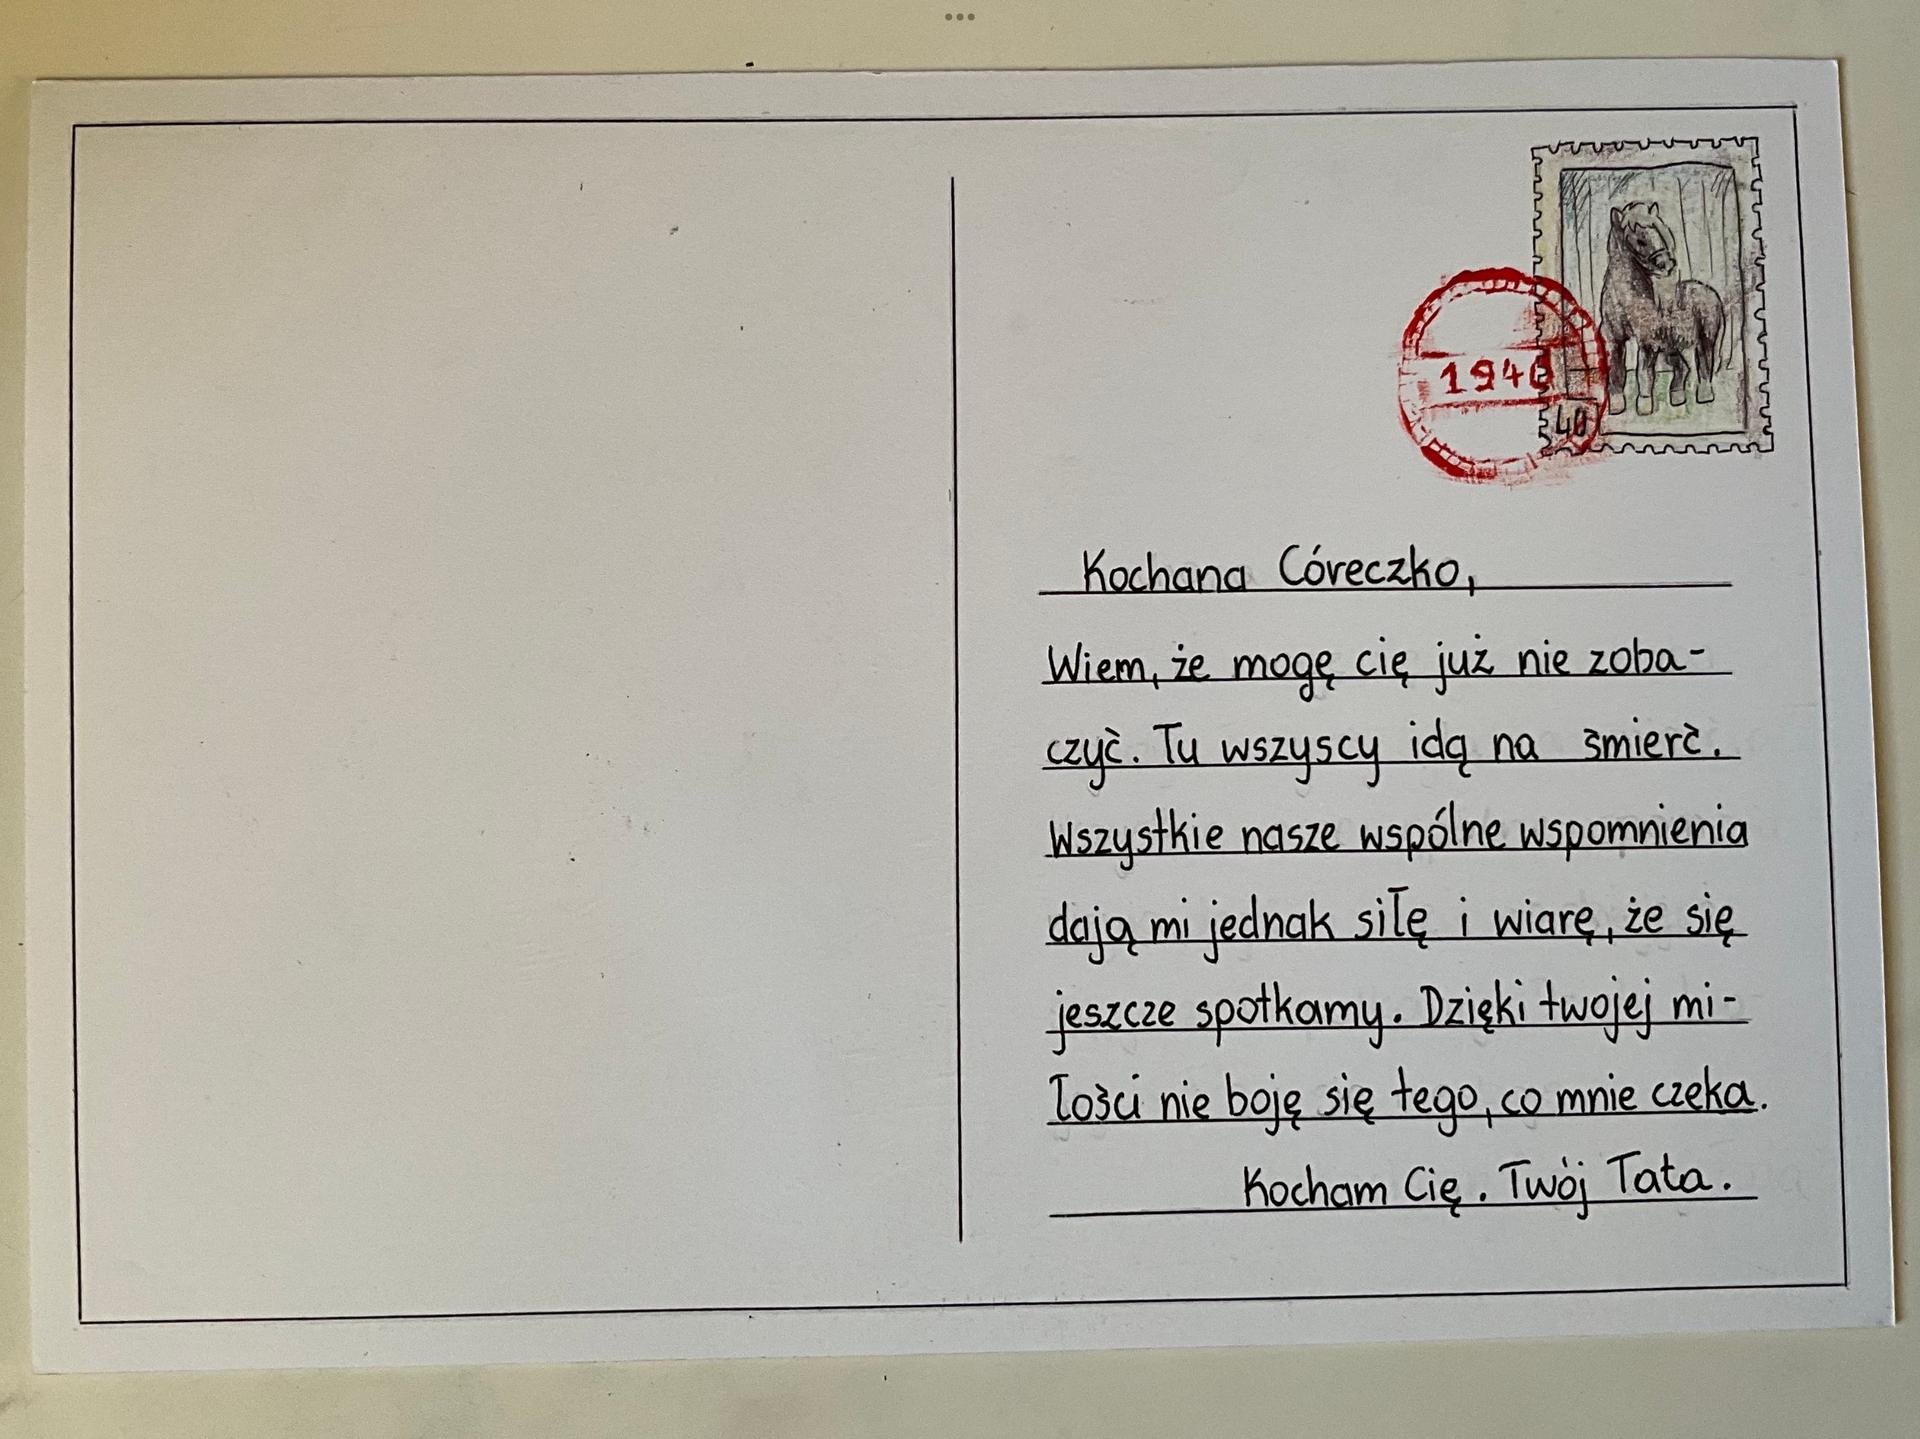 1940
40
Kochana Córeczko,
Wiem, że mogę cię już nie zoba-
czyć. Tu wszyscy idą na śmierć.
Wszystkie nasze wspólne wspomnienia
dają mi jednak siłę i wiarę, że się
jeszcze spotkamy. Dzięki twojej mi-
łości nie boję się tego, co mnie czeka.
Kocham Cię. Twój Tata.